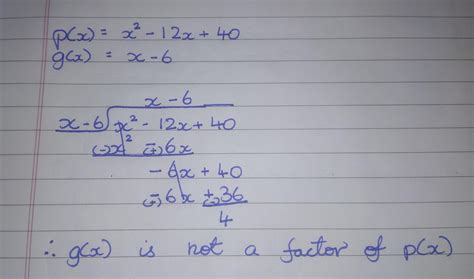 p(x) = x² - 12x + 40
g(x) = x - 6
x - 6
x - 6 ) x² - 12x + 40
(-)x² (-)(+)6x
- 6x + 40
(-)(+)6x (+)(-)36
4
∴ g(x) is not a factor of p(x)